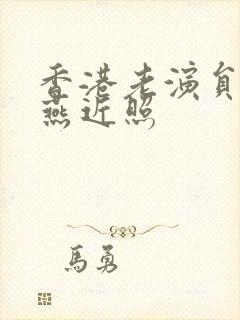 香港老演員
燕近照
馬勇